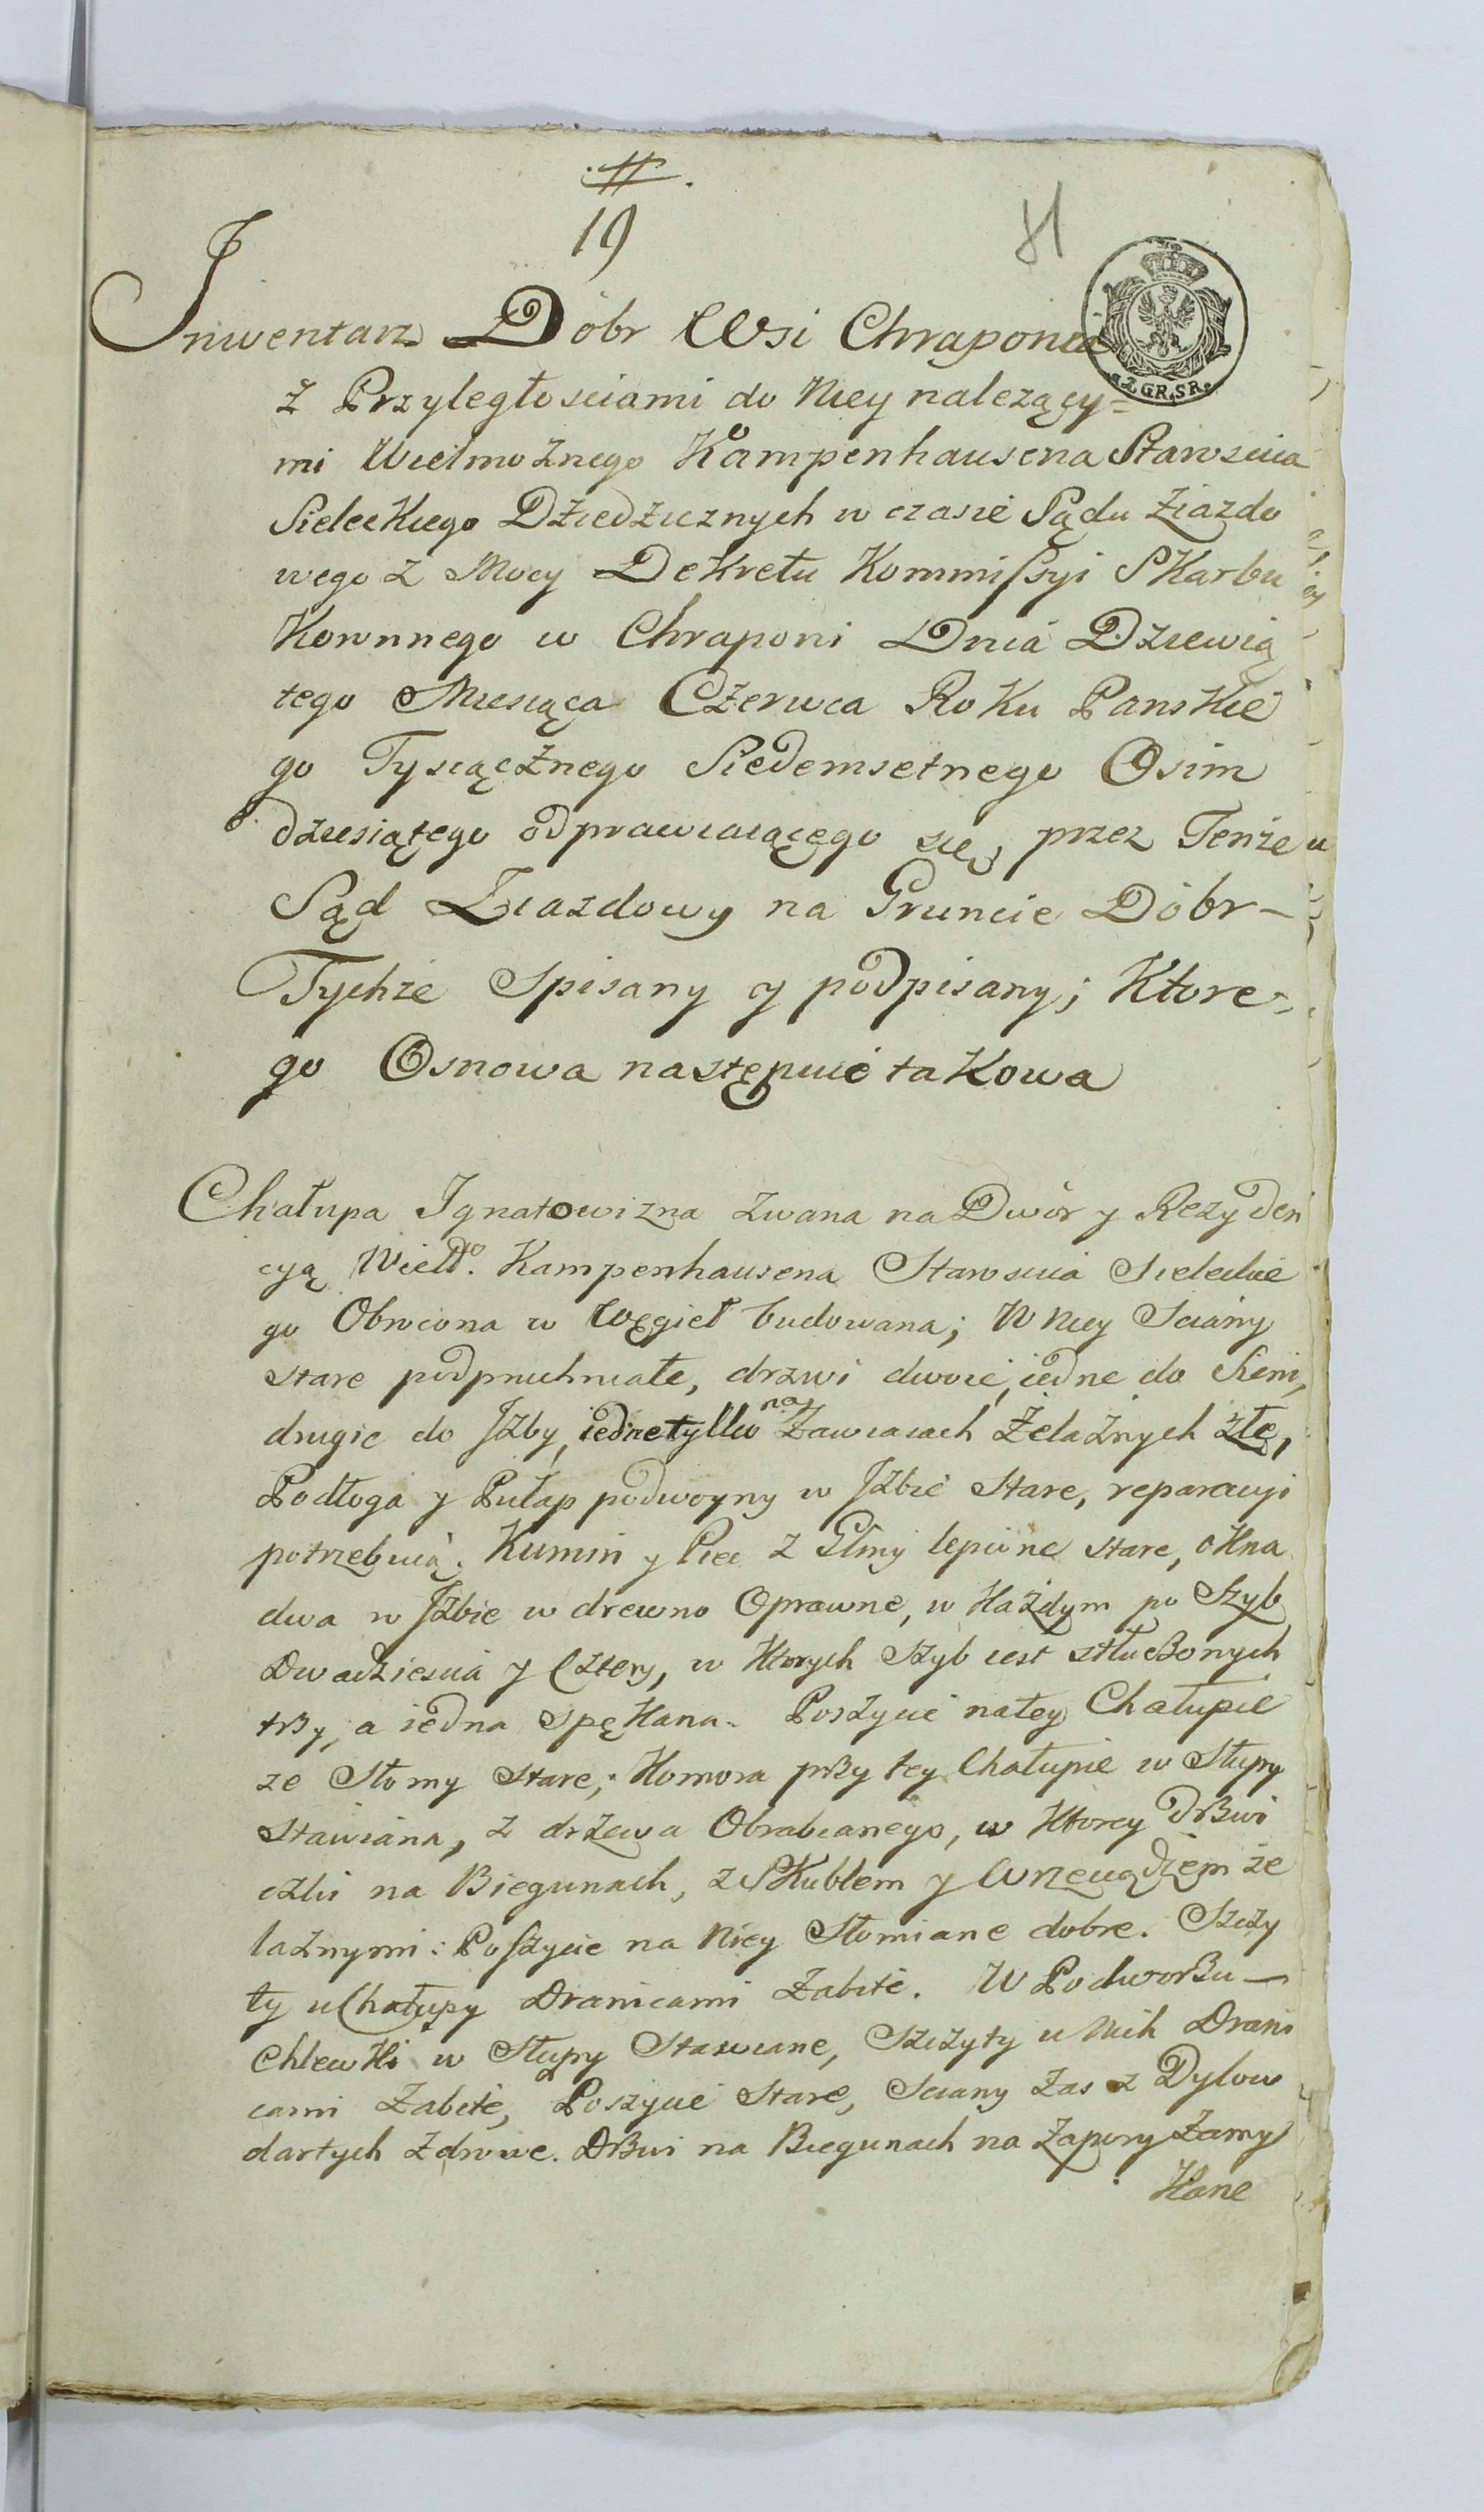 #
19
81
Inwentarz Dóbr Wsi Chraponia
2. GR. SR.
z Przyległosciami do Niey nalezący=
mi Wielmożnego Kampenhausena Starosciia
Sieleckiego Dziedzicznych w czasie Sądu Ziazdo
wego z Mocy Dekretu Kommissyi Skarbu
Koronnego w Chraponi Dnia Dziewią
tego Miesiąca Czerwca Roku Panskie
go Tysiącznego Siedemsetnego Osim
dziesiątego odprawiaiącego się, przez Tenże
Sąd Ziazdowy na Gruncie Dóbr –
Tychże Spisany y podpisany; Które=
go Osnowa następuie takowa
Chałupa Ignatowizna zwana na Dwór y Rezyden
cyą Wielo. Kampenhausena Starosciia Sieleckie
go Obrócona w Węgieł budowana; W Niey Sciány
stare podpruchniałe, drzwi dwoie, iedne do Sieni,
drugie do Jzby, iedne tylko na Zawiasach Żelaznych złe,
Podłoga y Pułap podwoyny w Jzbie Stare, reparacyi
potrzebuią. Kumin y Piec z Gliny lepione stare, okna
dwa w Jzbie w drewno Oprawne, w każdym po Szyb
Dwadziescia y Cztery, w ktorych Szyb iest stłuczonych
trzy, a iedna spękana. Poszycie na tey Chałupie
ze Słomy Stare; Komora przy tey Chałupie w Słupy
stawiana, z drzewa Obrabianego, w ktorey drzwi
człii na Biegunach, z Skublem y Wrzeciądzem że
laznymi: Poszycie na Niey Słomiane dobre. Szczy
ty u Chałupy Dranicami Zabite. W Podworzu –
Chlewki w Słupy Stawiane, Szczyty u Nich Drani
cami Zabite, Poszycie Stare, Sciany zas z Dylow
dartych Zdrowe. Drzwi na Biegunach na Zapory Zamy
kane